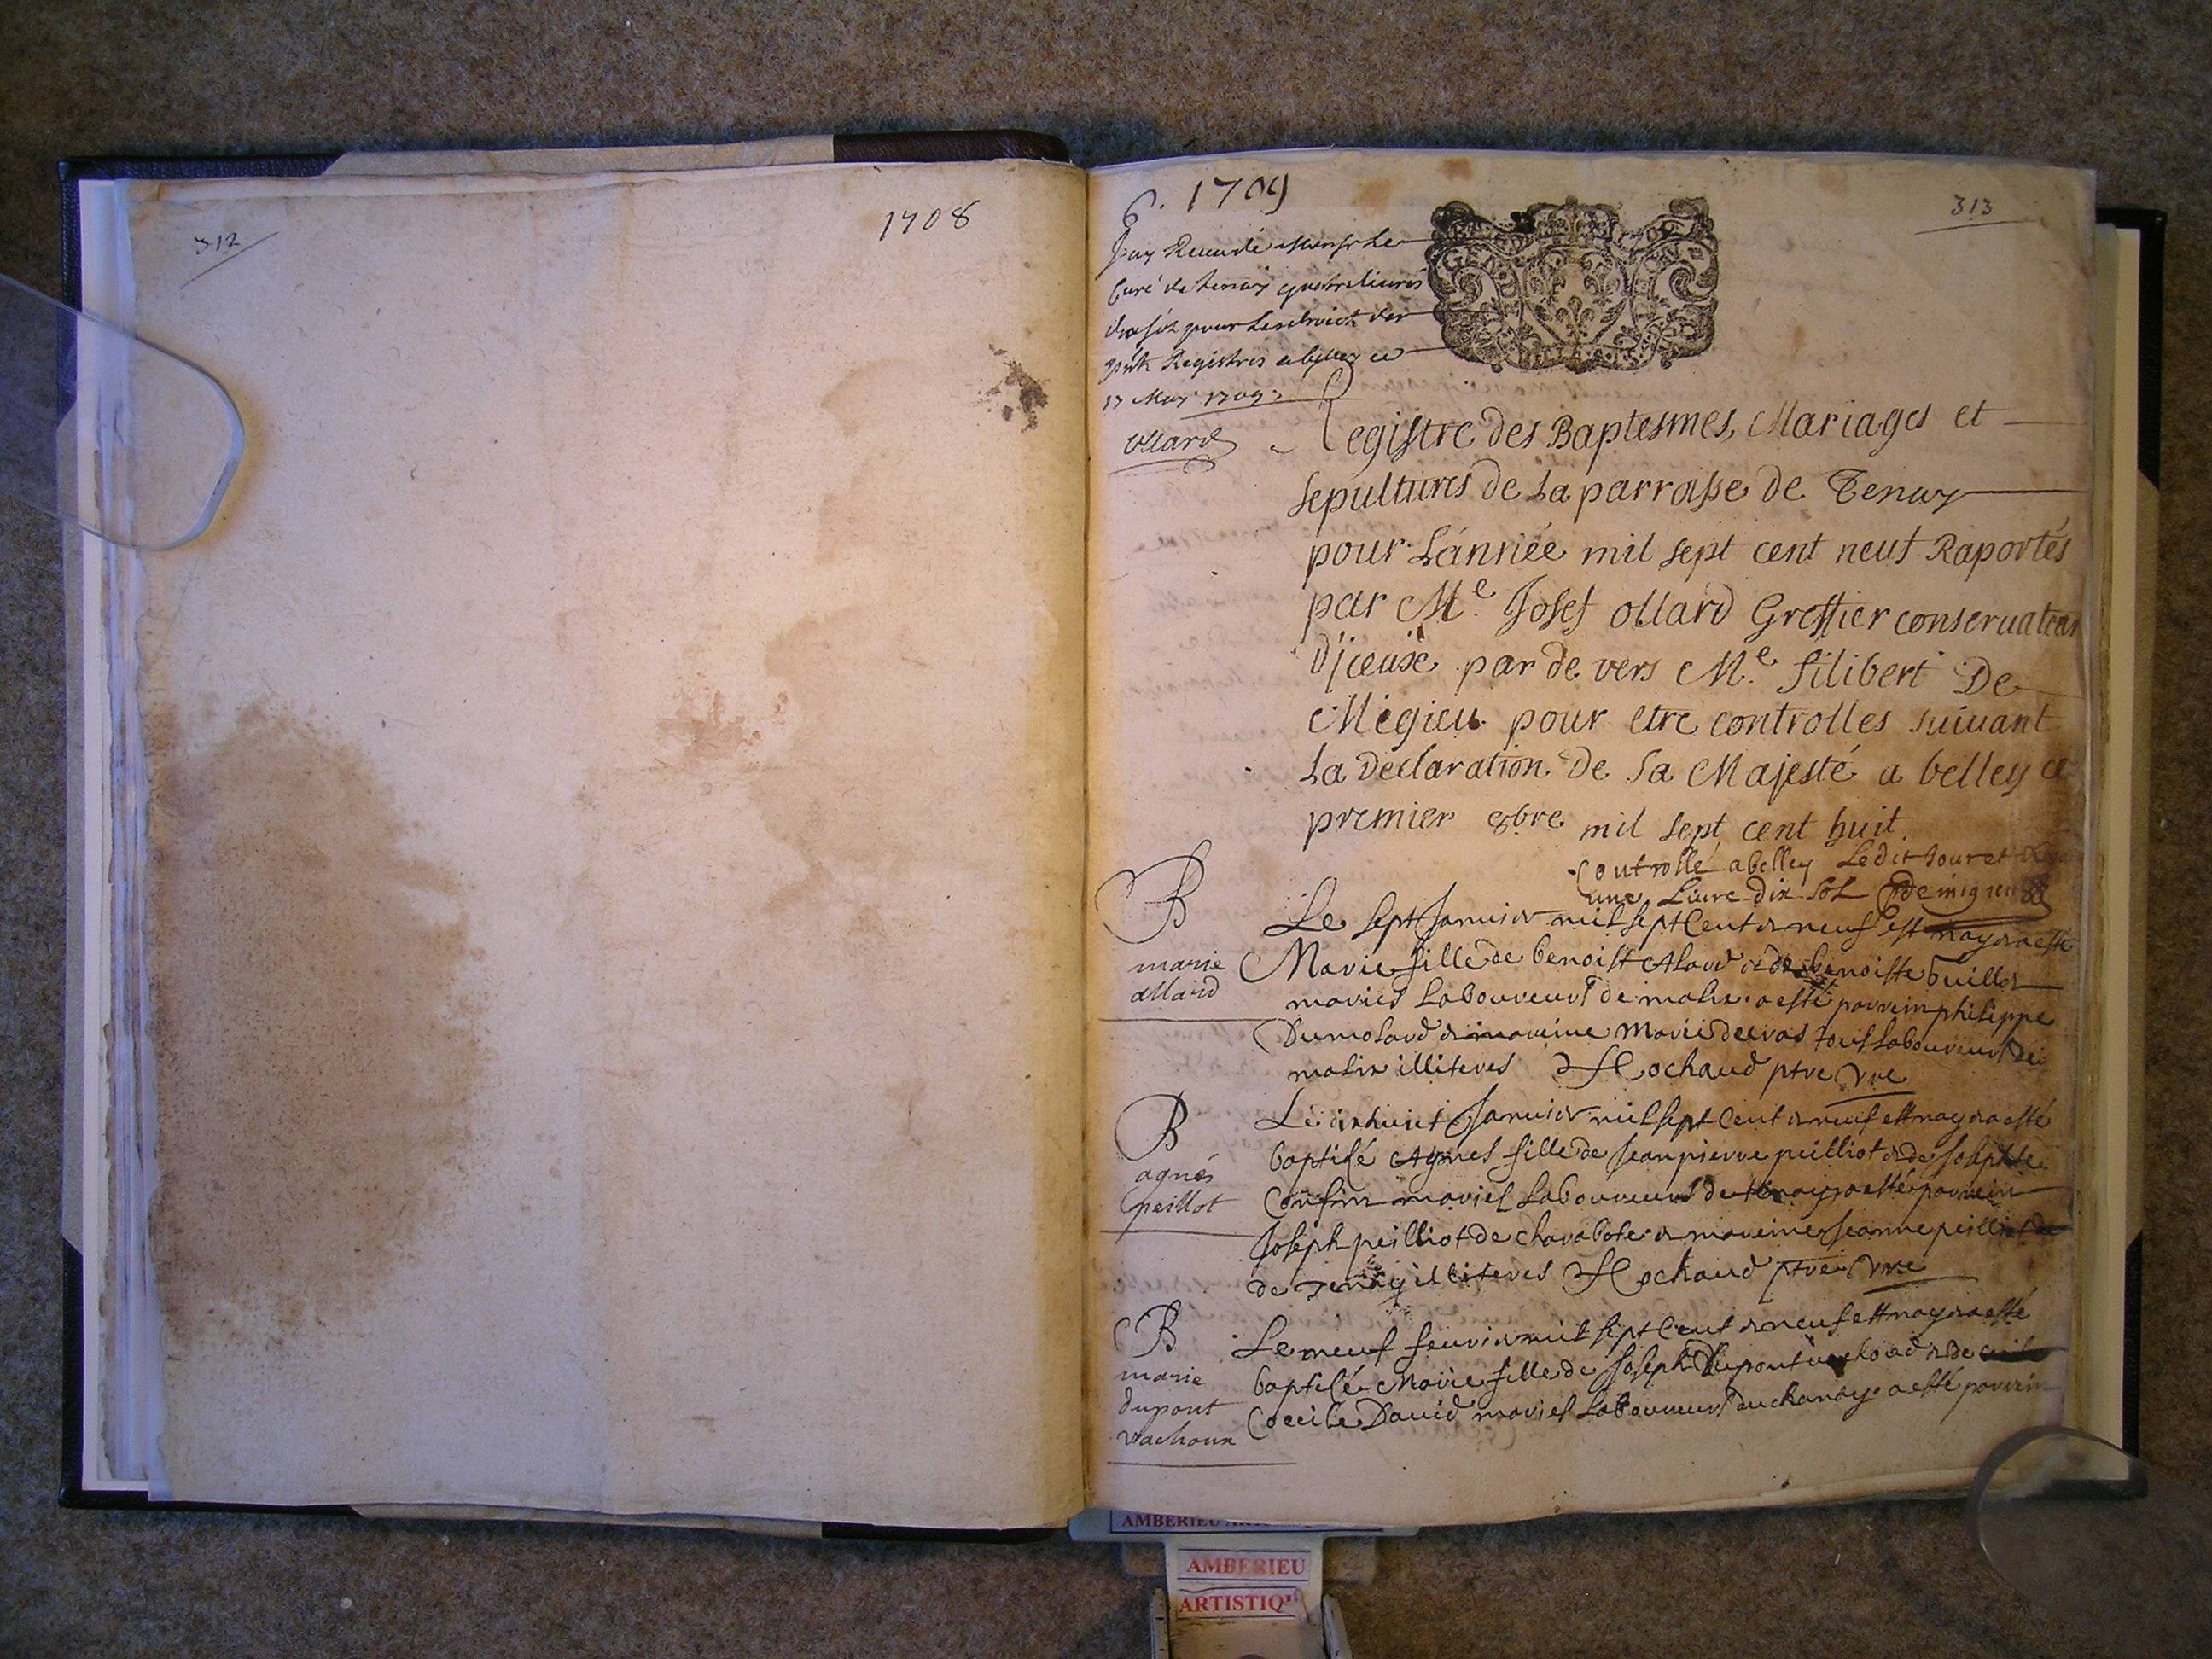 312
1708
6. 1709
313
Jay Receu de Monsr Le
Curé de Tenay quatre livres
dix sols pour Les droict des
Registres a belley ce
17 May 1709.
Ollard
Registre des Baptesmes, Mariages et
sepultures de La parroisse de Tenay
pour L'année mil sept cent neuf Raportés
par Me. Josef ollard Greffier conservateur
d'jceuxe par de vers Me. filibert De
Migieu pour etre controlles suivant
La declaration De Sa Majesté a belley ce
premier 8bre mil sept cent huit.
Controllé a belley Ledit Jour et
une Livre dix sols De migieu
B
marie
allard
Le sept Janvier mil sept Cent & neuf est nay & a esté
Marie fille de benoist Alard & de benoiste
mariés Laboureurs de malix a esté parrein philippe
Dumolard & mareine Marie tous Laboureurs de
malix illiteres Hochaud ptre vre
B
agnés
peillot
Le dixhuict Janvier mil sept Cent & neuf est nay & a esté
baptisé Agnes fille de Jean pierre peilliot & de Josephte
Confin mariés Laboureurs de tenay a esté parrein
Joseph peilliot de Charabote & mareine Jeanne peilliot de
de Tenay illiteres Hochaud ptre vre
B
marie
dupont
vachoux
Le neuf feuvrier mil sept Cent & neuf est nay & a esté
baptisé Marie fille de Joseph Dupont & de
Cecile David mariés Laboureurs du chanay a esté parrein
AMBERIEU
AMBERIEU
ARTISTIQ